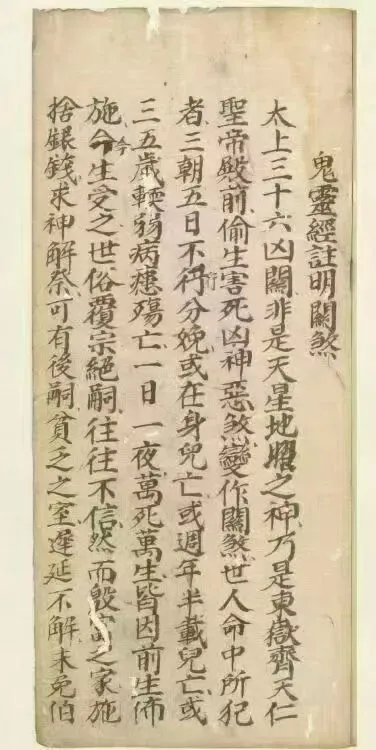 鬼靈經註明關煞
太上三十六凶關非是天星地曜之神乃是東嶽齊天仁
聖帝殿前偷生害死凶神惡煞變作關煞世人命中所犯
者三朝五日不行分娩或在身兒亡或週年半載兒亡或
三五歲輕弱病瘧殤亡一日一夜萬死萬生皆因前生佈
施今生受之世俗覆宗絕嗣往往不信然而殷富之家施
捨銀錢求神解祭可有後嗣貧乏之室遲延不解未免伯